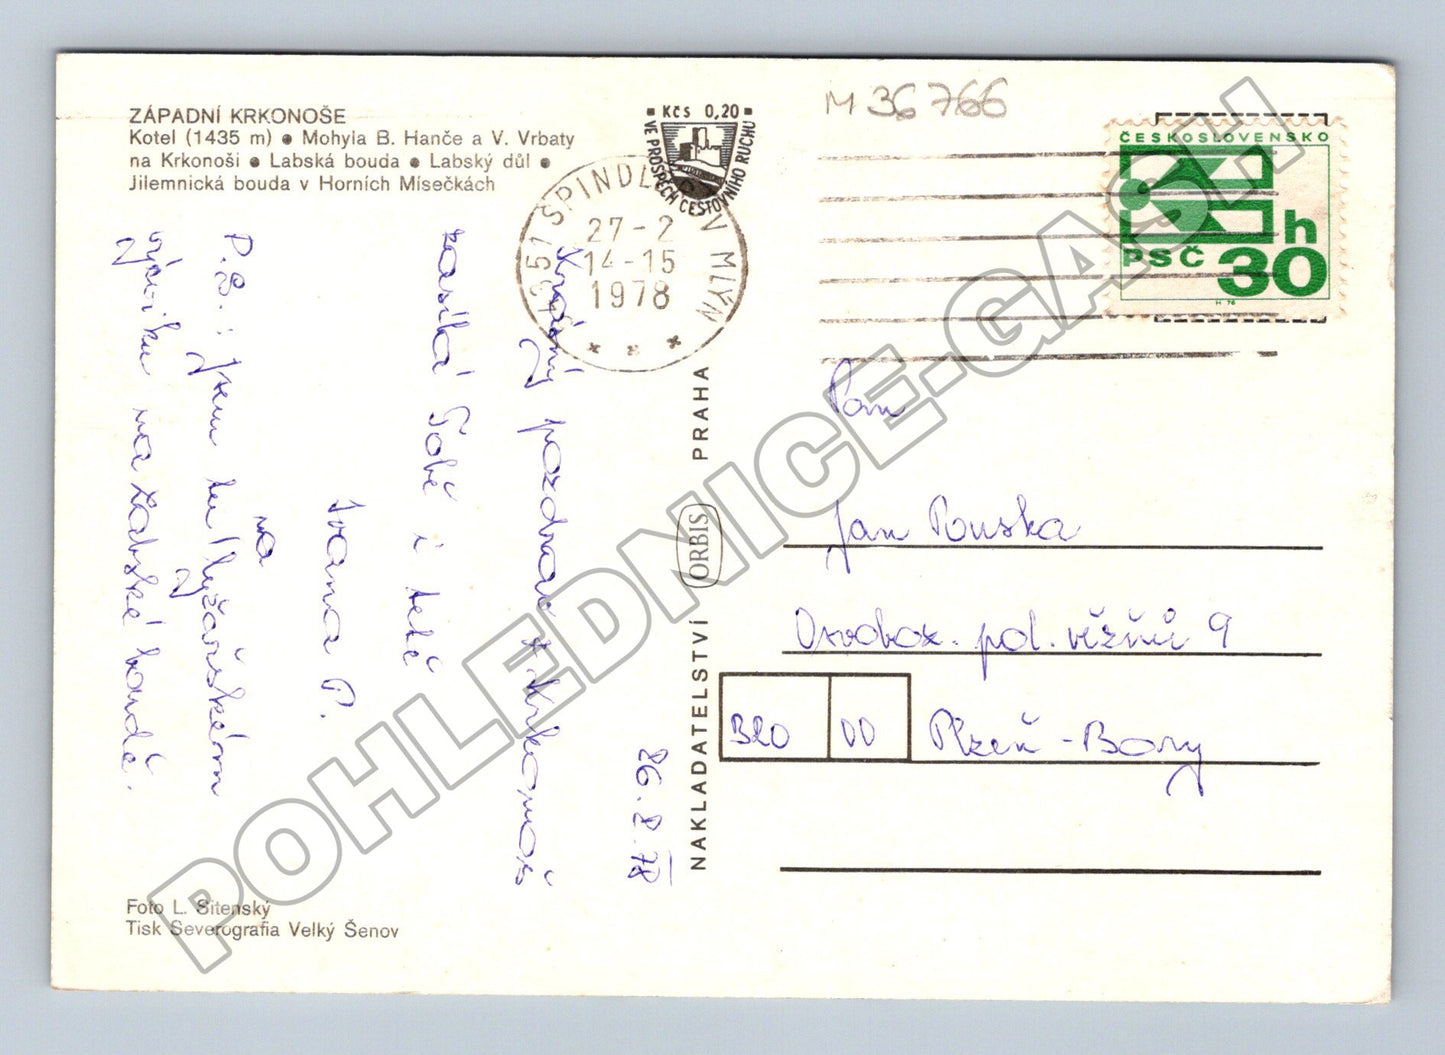 ZÁPADNÍ KRKONOŠE
Kotel (1435 m) ● Mohyla B. Hanče a V. Vrbaty
na Krkonoši ● Labská bouda ● Labský důl ●
Jilemnická bouda v Horních Mísečkách
Kčs 0,20
VE PROSPĚCH CESTOVNÍHO RUCHU
M 36 766
543 51 ŠPINDLERŮV MLÝN
27-2
14-15
1978
ČESKOSLOVENSKO
h
PSČ 30
H 76
26.2.78
Krásný pozdrav z Krkonoš
zasílá Tobě i tetě
Ivana P.
P.S.: jsem tu na lyžařském
výcviku na Labské boudě.
NAKLADATELSTVÍ ORBIS PRAHA
Pan
Jan Pouska
pol. věžňů 9
320 00 Plzeň - Bory
Foto L. Sitenský
Tisk Severografia Velký Šenov
POHLEDNICE-GASH